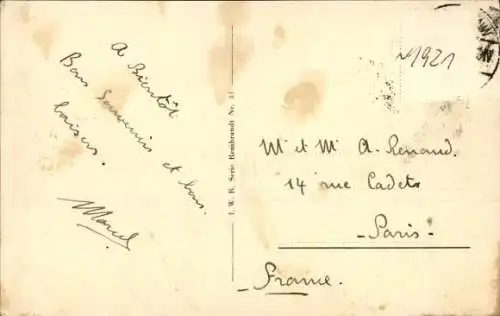 A Bientôt
Bons Souvenirs et bons
baisers.
Marcel
I. W. B. Serie Rembrandt Nr.
1921
Mr et Me A. Renaud.
14 rue Cadets
- Paris -
- France.